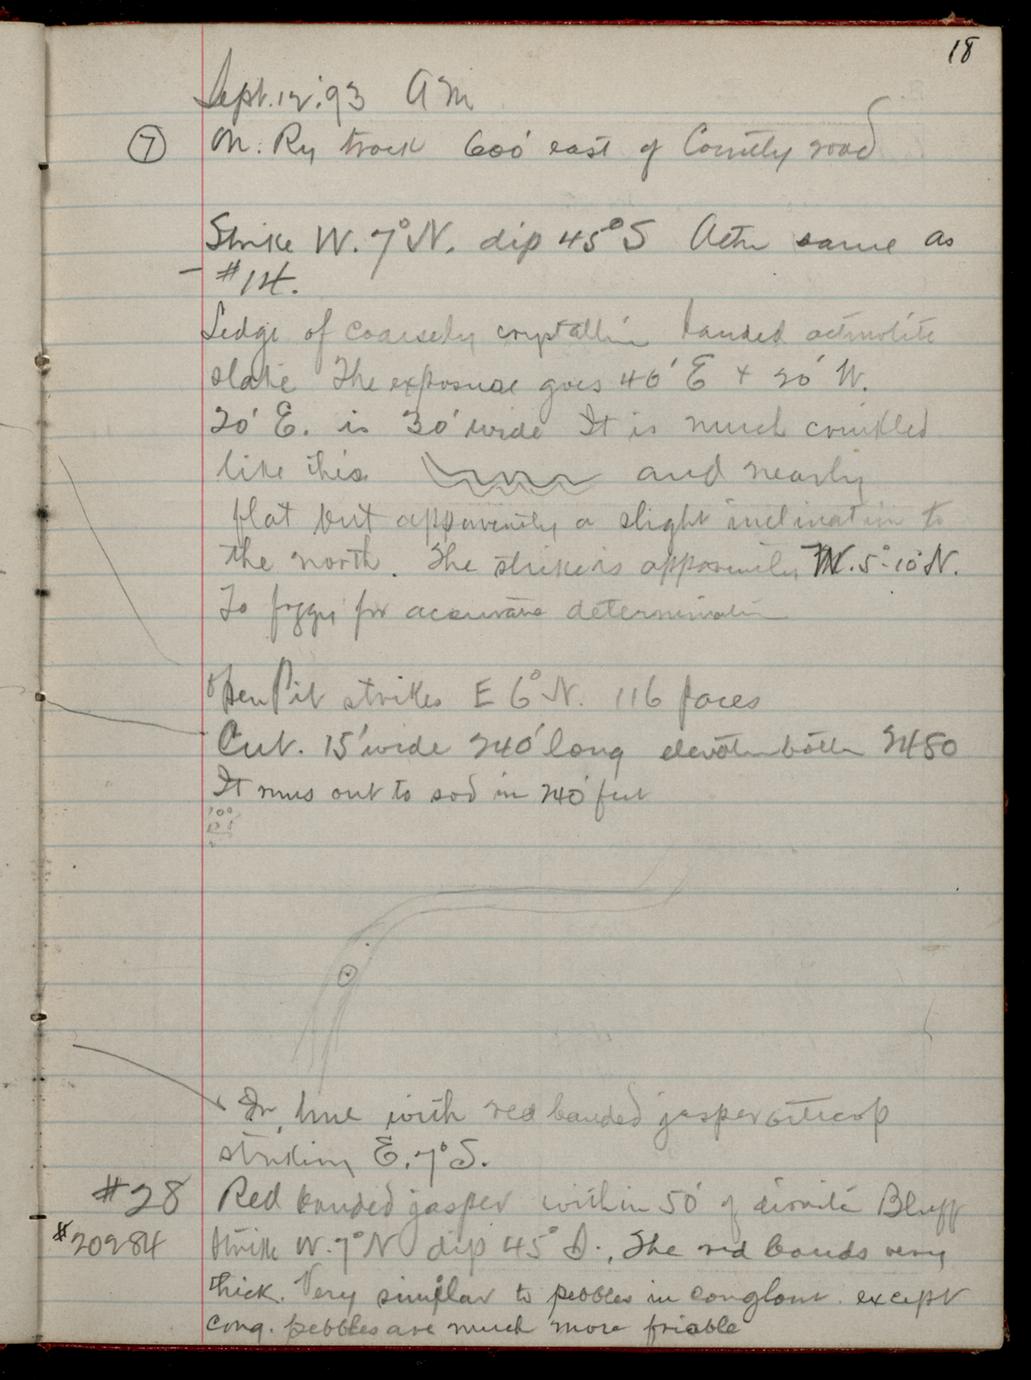 18
Sept. 12. '93 A M
7 On. Ry track 600' east of County road
Strike W. 7° N. dip 45° S Actn same as
- #14.
Ledge of coarsely crystallin banded actinolite
slate The exposure goes 40' E + 20' W.
20' E. is 30' wide It is much crinkled
like this and nearly
flat but apparently a slight inclination to
the north. The strike is apparently W. 5°-10° N.
To foggy for accurate determination
Open Pit strikes E 6° N. 116 paces
Cut. 15' wide 240' long elevation bottm 2480
It runs out to sod in 240 feet
100
In line with red banded jasper outcrop
striking E. 7° S.
#28 Red banded jasper within 50' of diorite Bluff
#20284 Strike W. 7° N dip 45° S., The red bands very
thick. Very similar to pebbles in conglom. except
cong. pebbles are much more friable